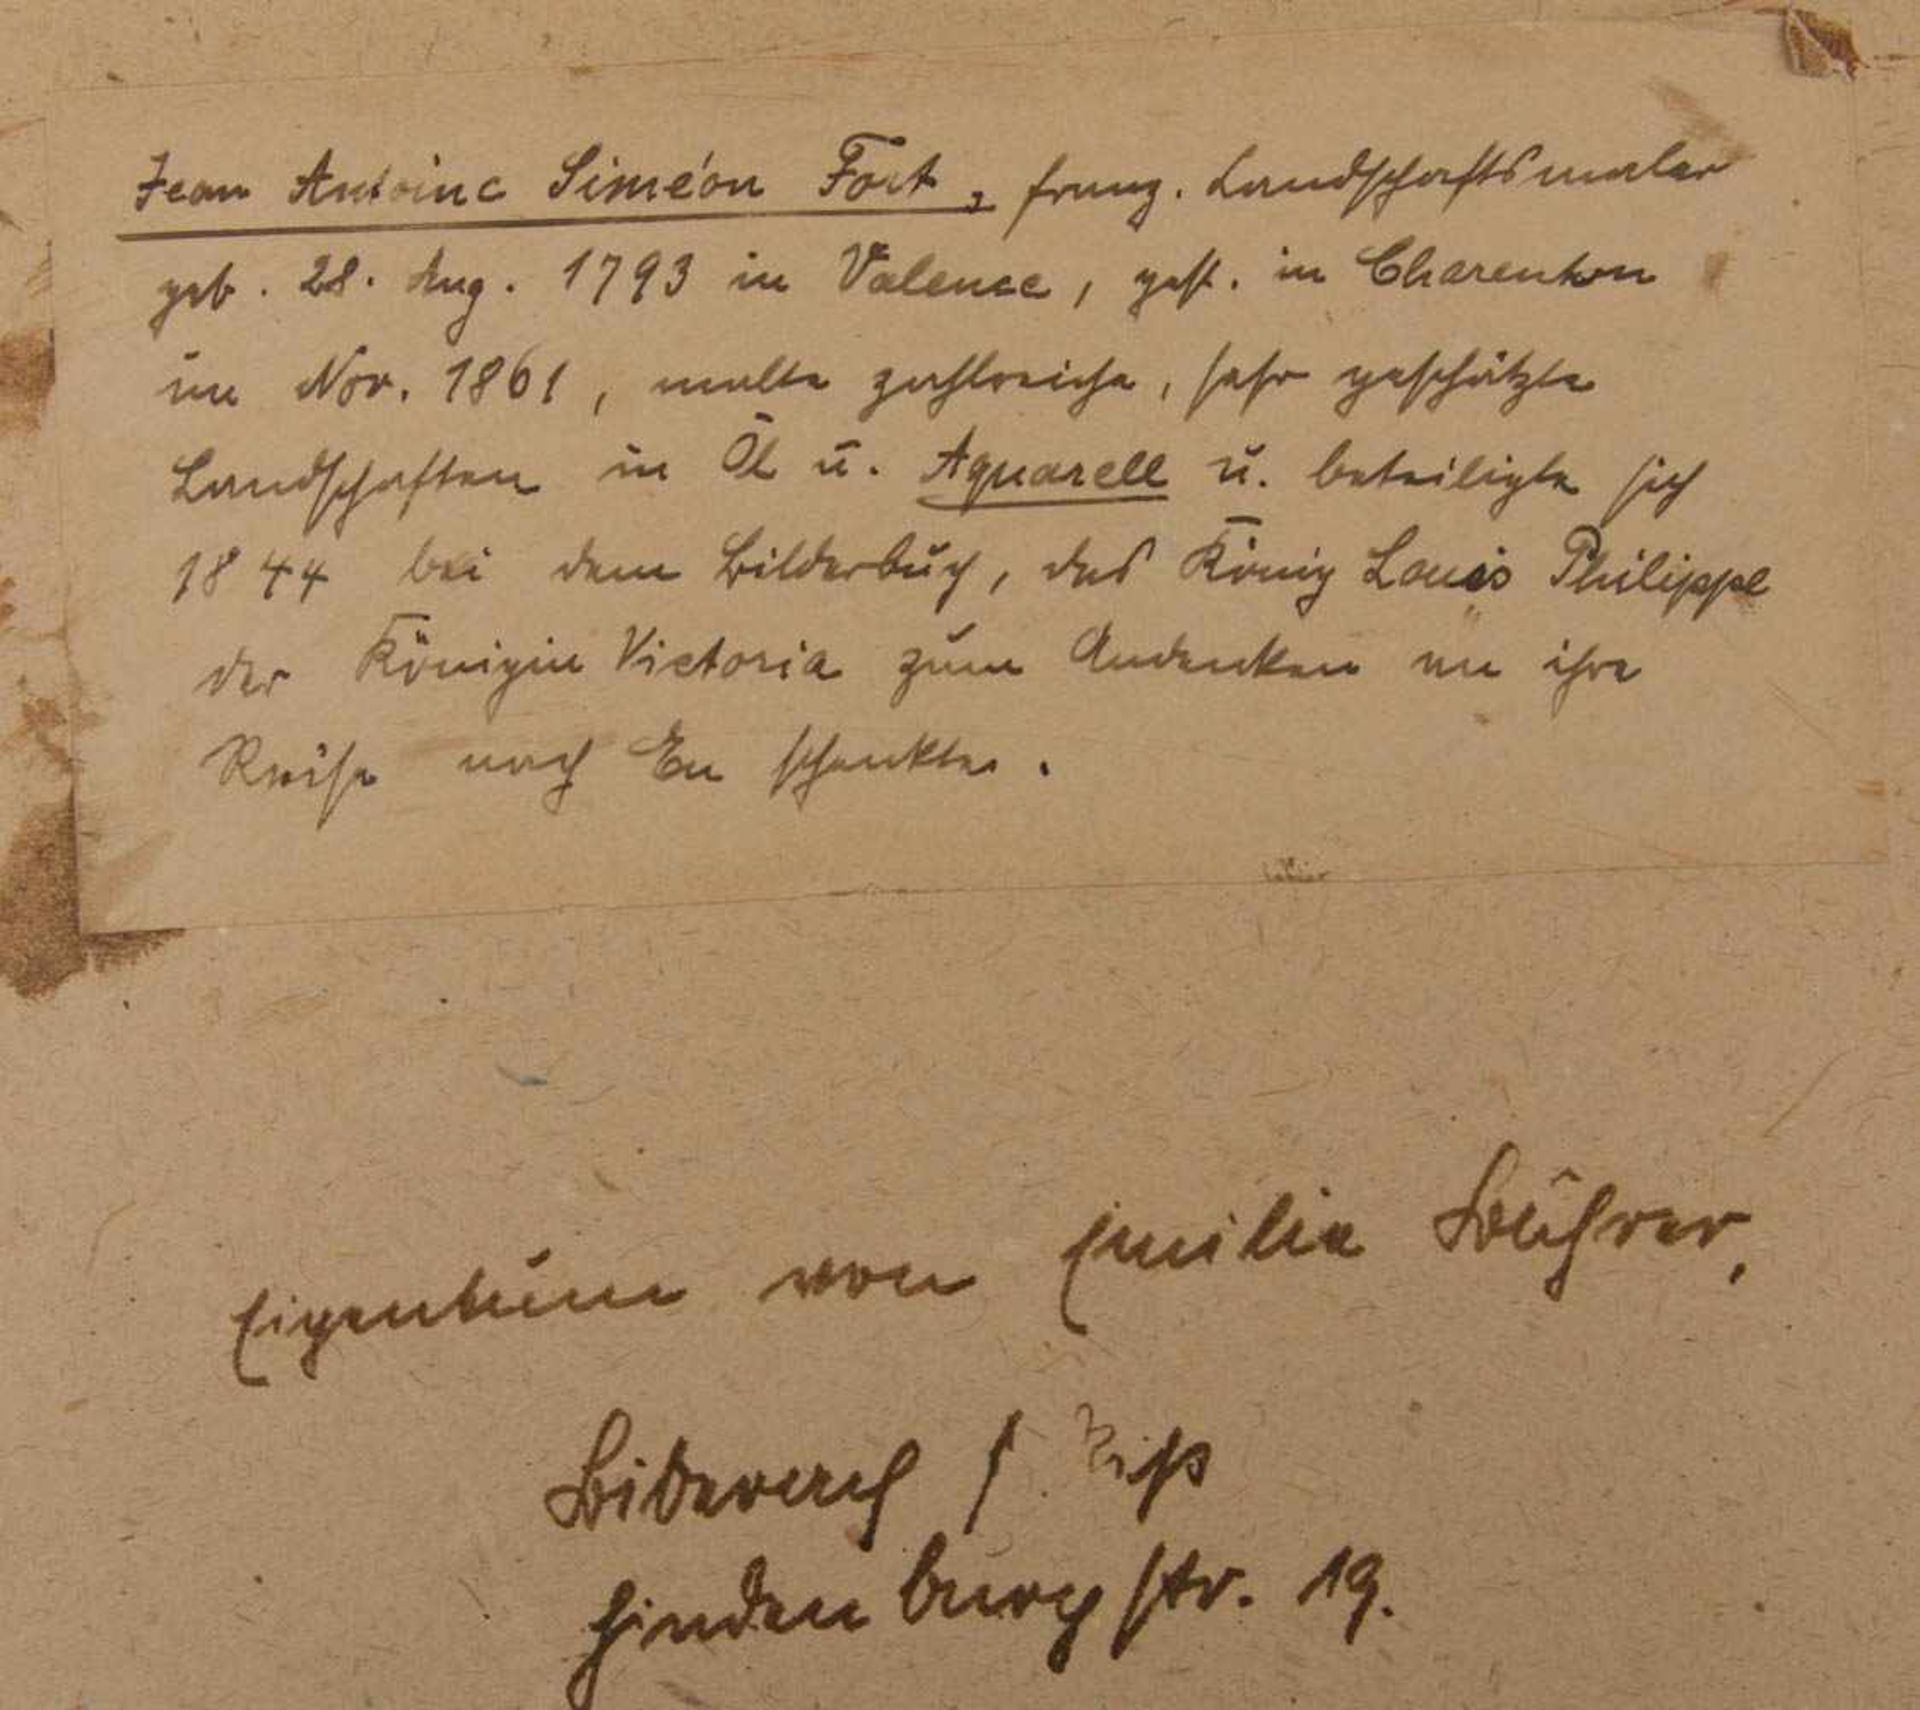 Jean Antoine Siméon Fort, franz. Landschaftsmaler
geb. 28. Aug. 1793 in Valence, gest. in Charenton
im Nov. 1861, malte zahlreiche, sehr geschätzte
Landschaften in Öl u. Aquarell u. beteiligte sich
1844 bei dem Bilderbuch, das König Louis Philippe
der Königin Victoria zum Andenken an ihre
Reise nach Eu schenkte.
Eigentum von Emilie Bührer,
Biberach / Riß
Hindenburgstr. 19.